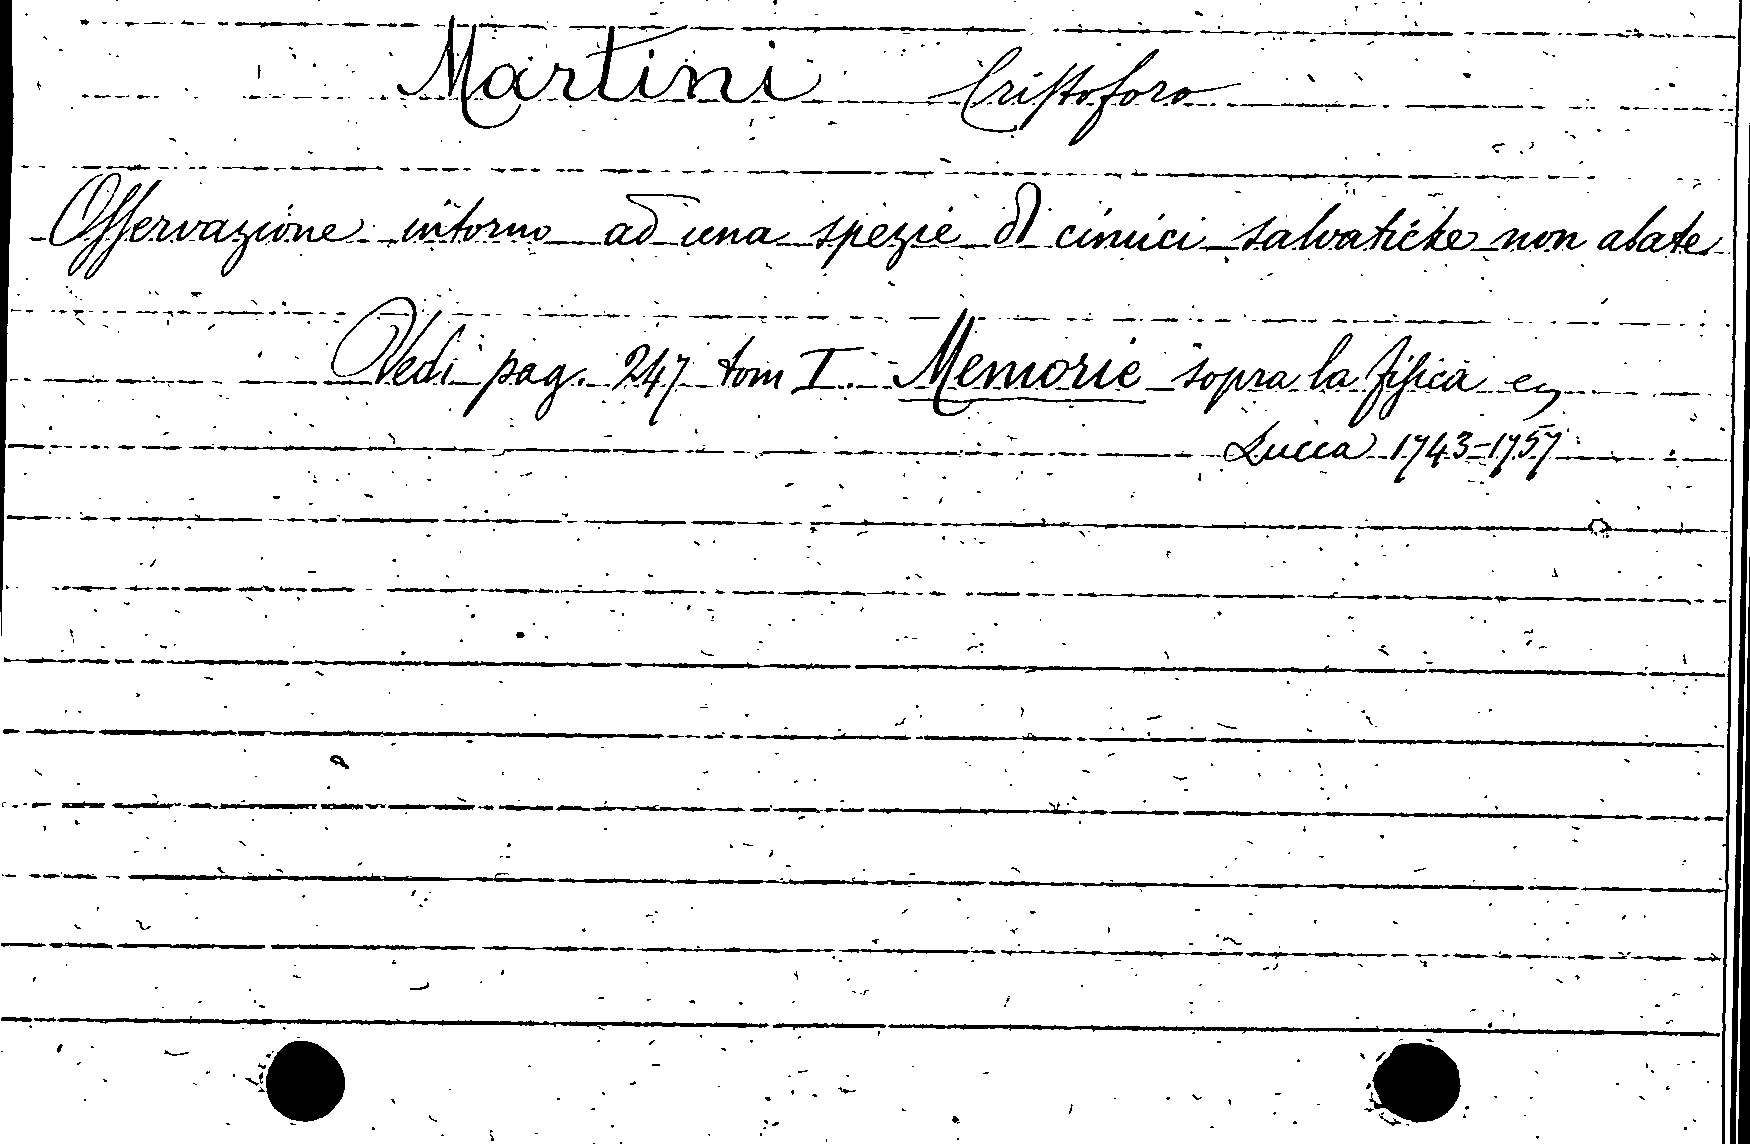 Martini Cristoforo
Osservazione intorno ad una spezie di cimici salvatiche non alate
Vedi pag. 247 tom I. Memorie sopra la fisica ec
Lucca 1743-1757